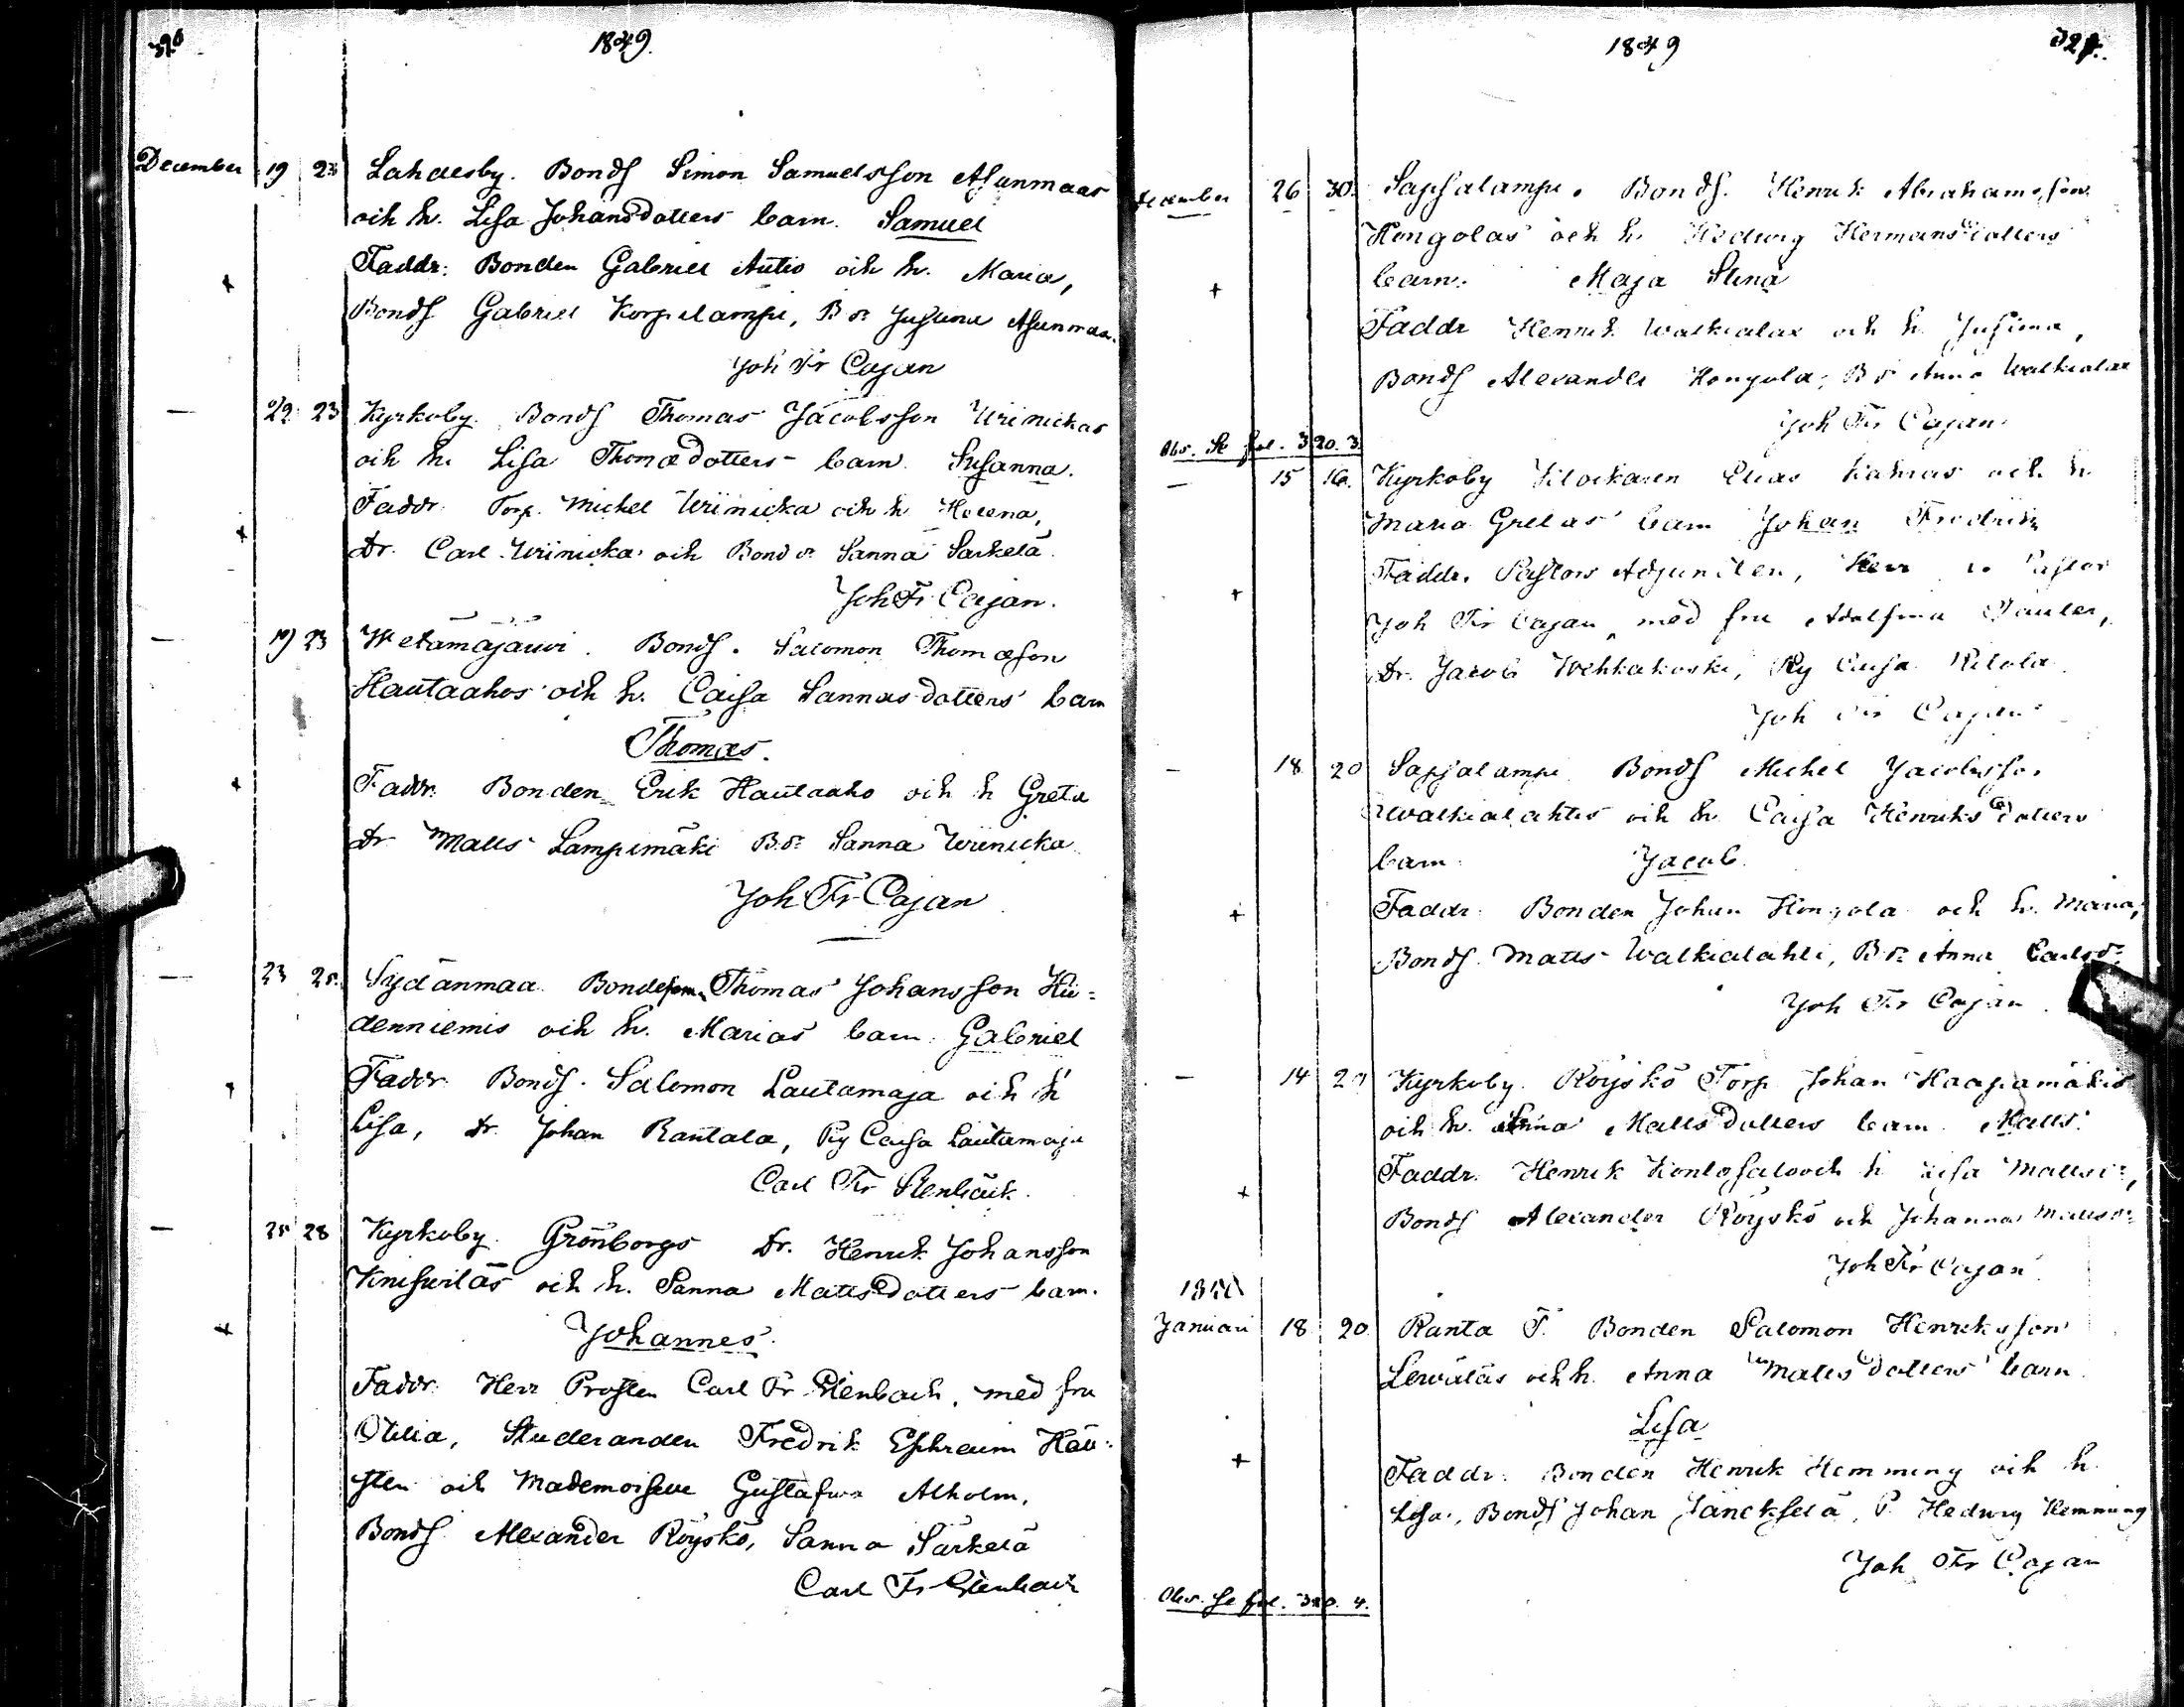 326
1849.
December 19 23 Lahdesby. Bonds Simon Samuelsson Asunmaas
och h. Lisa Johansdotters barn. Samuel
Faddr: Bonden Gabriel Autio och h. Maria,
Bonds Gabriel Korpelampi, B dr Justina Asunmaa.
Joh Fr Cajan
— 22 23 Kyrkoby. Bonds Thomas Jacobsson Wiinickas
och h. Lisa Thomædotters barn Susanna.
Faddr. Torp. Michel Wiinicka och h Helena,
Dr. Carl Wiinicka och Bond dr Sanna Särkelä.
Joh Fr Cajan.
— 19 23 Wetämäjärwi. Bonds. Salomon Thomæson
Hautaahos och h. Caisa Sannasdotters barn
Thomas.
Faddr. Bonden Erik Hautaaho och h Greta
Dr Matts Lampimäki B.dr Sanna Wiinicka
Joh Fr Cajan
— 23 25. Sydänmaa. Bondesonen Thomas Johansson Hii=
denniemis och h. Marias barn Gabriel
Faddr. Bonds. Salomon Lautamaja och h
Lisa, Dr. Johan Rantala, Pig Caisa Lautamaja
Carl Fr Stenbäck.
— 25 28 Kyrkoby. Grönborgs Dr. Henrik Johansson
Kniswiläs och h. Sanna Mattsdotters barn.
Johannes.
Faddr. Herr Prosten Carl Fr Stenbäck, med fru
Otilia, Studeranden Fredrik Ephraim
och Mademoiselle Gustafva Alholm,
Bonds Alexander Röyskö, Sanna Särkelä
Carl Fr Stenbäck
1849
327.
December 26 30. Sapsalampi. Bonds. Henrik Abrahamsson
Hongolas och h. Hedwig Hermansdotters
barn. Maja Stina
Faddr Henrik Walkialax och h. Justina,
Bonds Alexander Hongola, B dr Anna Walkialax
Joh Fr Cajan
Obs. Se fol. 320. 3
— 15 16. Kyrkoby Klockaren Elias Kahras och h
Maria Gretas barn Johan Fredrik
Faddr. Pastors Adjuncten, Herr v. Pastor
Joh Fr Cajan, med fru Adolfina
Dr. Jacob Wehkakoski, Pig Caisa Kitola
Joh Fr Cajan
— 18 20 Sapsalampi Bonds Michel Jacobsson
Walkialahtis och h. Caisa Henriksdotters
barn. Jacob.
Faddr. Bonden Johan Hongola och h. Maria,
Bonds. Matts Walkialahti, B dr Anna Carlsdr
Joh Fr Cajan
— 14 20 Kyrkoby. Röyskö Torp. Johan Haapamäkis
och h. Stina Mattsdotters barn. Matts.
Faddr. Henrik Kontosalo och h Lisa Mattsdr,
Bonds Alexander Röyskö och Johanna Mattsdr
Joh Fr Cajan
1850
Januari 18 20. Ranta T. Bonden Salomon Henriksson
Lewäläs och h. Anna Mattsdotters barn
Lisa
Faddr. Bonden Henrik Hemming och h.
Lisa, Bonds Johan Jänckselä, P. Hedwig Hemming
Joh Fr Cajan
Obs. Se fol. 320. 4.